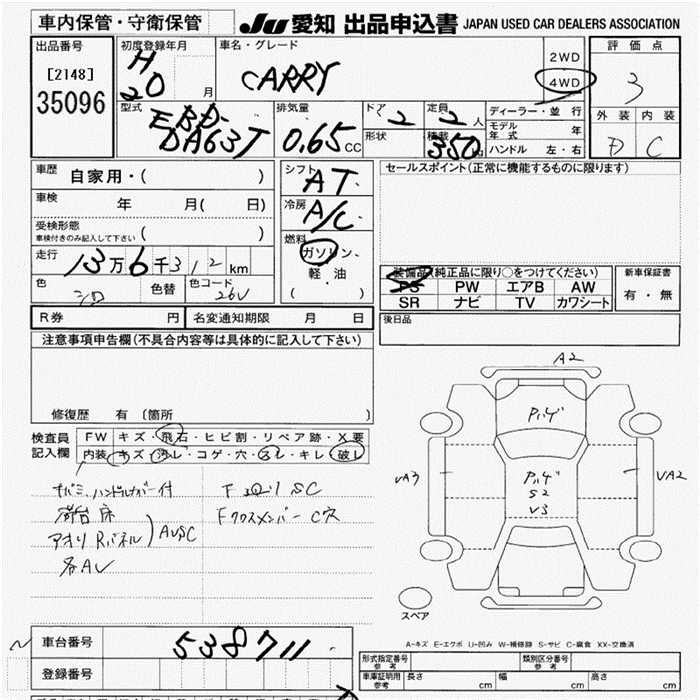 車内保管・守衛保管
JU 愛知 出品申込書 JAPAN USED CAR DEALERS ASSOCIATION
出品番号
[2148]
35096
初度登録年月
H
20 月
車名・グレード
CARRY
2WD
4WD
評価点
3
外装 内装
D C
型式
EBD-
DA63T
排気量
0.65 CC
ドア 2
形状
定員 2 人
積載 350 kg
ディーラー・並行
モデル年式 年
ハンドル 左・右
車歴 自家用・( )
車検 年 月( 日)
受検形態
車検付きのみ記入して下さい ( )
走行 13万6千312km
色 シロ
色替
色コード 26U
シフト AT
冷房 A/C
燃料
ガソリン、
軽・油
( )
セールスポイント(正常に機能するものに限ります)
装備品(純正品に限り○をつけてください)
PS PW エアB AW
SR ナビ TV カワシート
新車保証書
有・無
R券 円
名変通知期限 月 日
後日品
注意事項申告欄(不具合内容等は具体的に記入して下さい)
修復歴 有 〔箇所 〕
検査員記入欄
FW キズ・飛石・ヒビ割・リペア跡・X要
内装 キズ・汚レ・コゲ・穴・スレ・キレ・破レ
サバミ、ハンドルカバー付
荷台床
アオリ Rパネル ) AUSC
各AU
SC
Fクロスメンバー C穴
A2
Pハゲ
UA3
Pハゲ
S2
U3
UA2
スペア
A-キズ E-エクボ U-凹み W-補修跡 S-サビ C-腐食 XX-交換済
車台番号 538711
登録番号
形式指定番号 参考
類別区分番号 参考
車庫証明用 参考
長さ cm
幅 cm
高さ cm